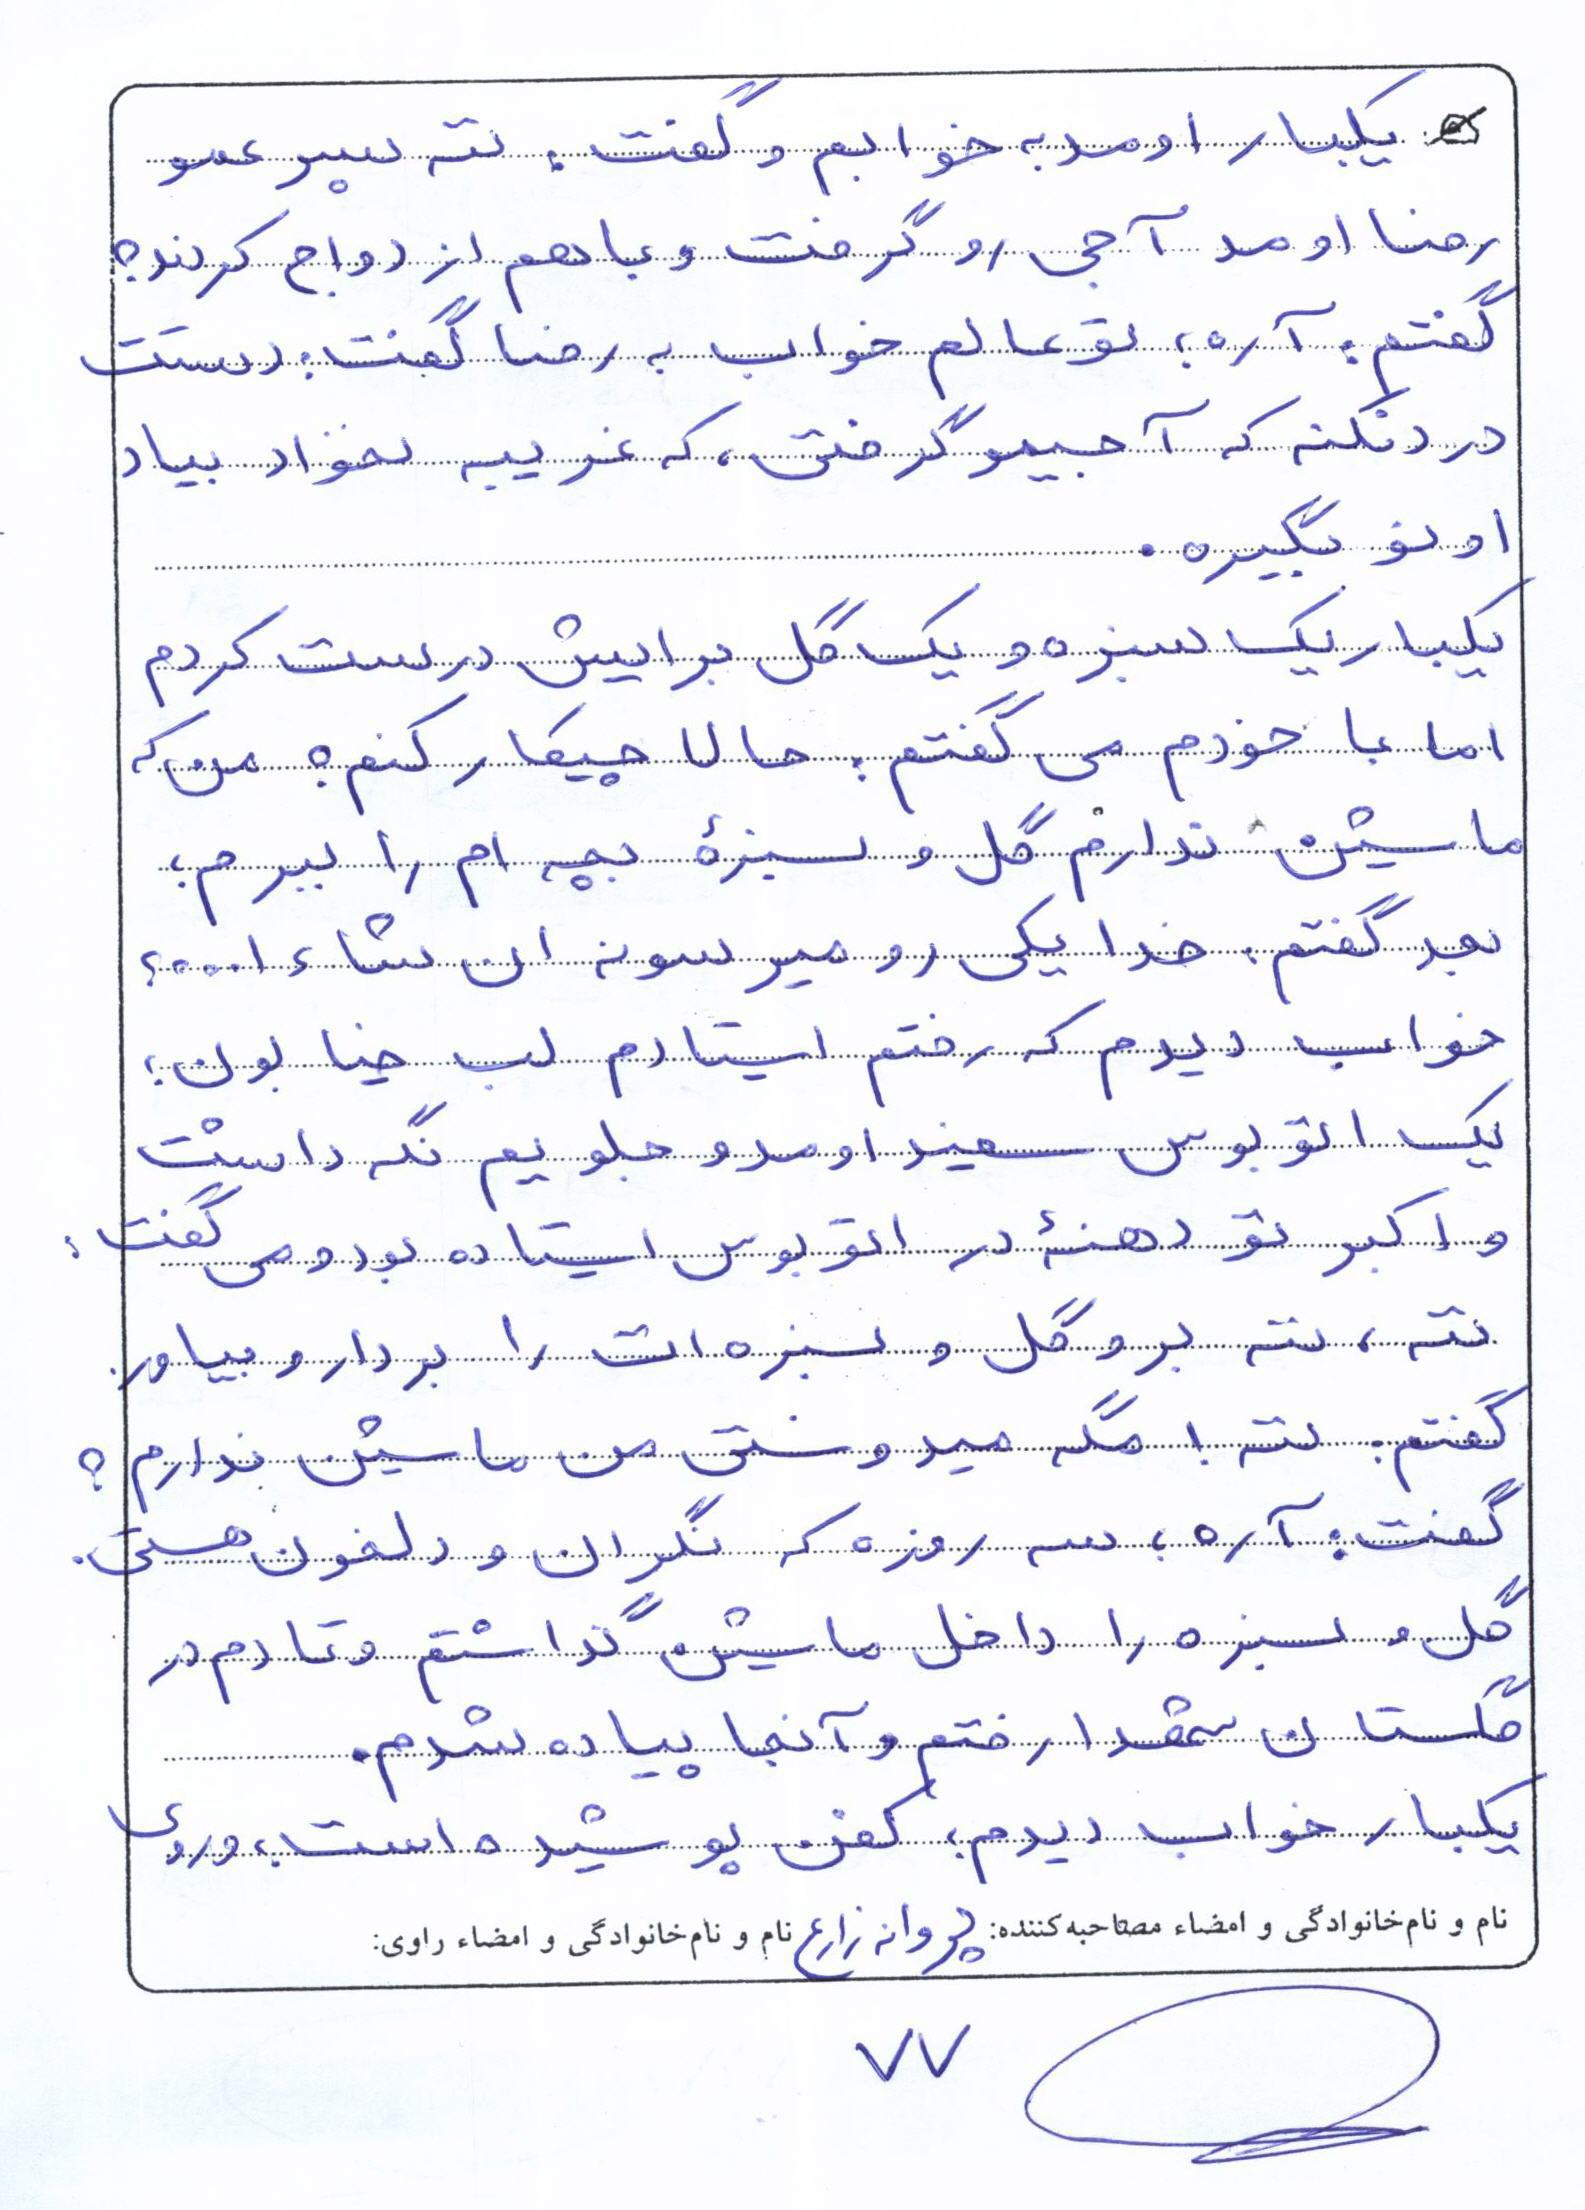 یکبار اومد به خوابم و گفت: ننه پسر عمو
رضا اومد آجی رو گرفت و باهم ازدواج کردند؟
گفتم: آره؛ تو عالم خواب به رضا گفت: دستت
درد نکنه که آجیمو گرفتی، که غریبه نخواد بیاد
اونو بگیره.
یکبار یک سبزه و یک گل برایش درست کردم
اما با خودم می گفتم: حالا چیکار کنم؟ من که
ماشین ندارم گل و سبزهٔ بچه ام را ببرم؛
بعد گفتم: خدا یکی رو میرسونه ان شاء ا....؛
خواب دیدم که رفتم ایستادم لب خیابون؛
یک اتوبوس سفید اومد و جلویم نگه داشت
و اکبر تو دهنهٔ در اتوبوس ایستاده بود و می گفت:
ننه، ننه برو گل و سبزه ات را بردار و بیاور.
گفتم: ننه! مگه میدونستی من ماشین ندارم؟
گفت: آره؛ سه روزه که نگران و دلخون هستی.
گل و سبزه را داخل ماشین گذاشتم و تا دم در
گلستان شهدا رفتم و آنجا پیاده شدم.
یکبار خواب دیدم؛ کفن پوشیده است، و روی
نام و نام‌خانوادگی و امضاء مصاحبه‌کننده: پروانه زارع نام و نام‌خانوادگی و امضاء راوی:
۷۷